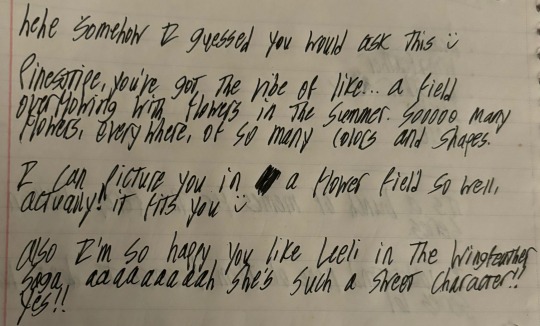 hehe somehow I guessed you would ask this :)
Pinestripe, you're got the vibe of like... a field
overflowing with flowers in the summer. sooooo many
flowers, everywhere, of so many colors and shapes.
I can picture you in a flower field so well,
actually! it fits you :)
also I'm so happy you like Leeli in the Wingfeather
Saga, aaaaaaaaah she's such a sweet character!!
yes!!